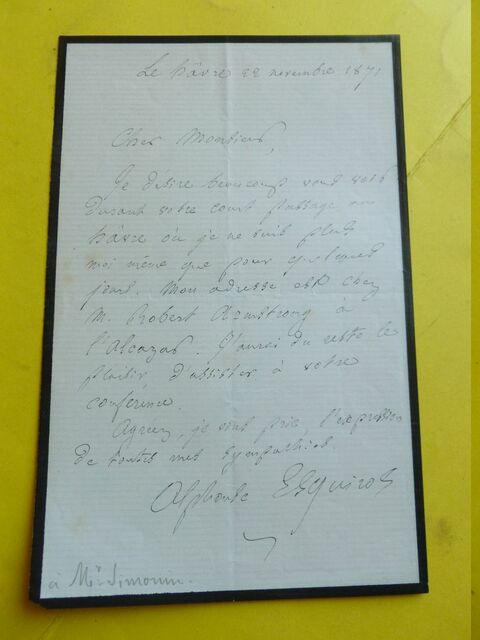 Le hâvre 22 novembre 1871
Cher Monsieur,
Je désire beaucoup vous voir
durant votre court passage au
hâvre où je ne suis plus
moi même que pour quelques
jours. Mon adresse est chez
M. Robert Armstrong à
l'Alcazar. J'aurai du reste le
plaisir d'assister à votre
conférence.
Agréez, je vous prie, l'expression
de toutes mes sympathies.
Alphonse Esquiros
à Mr Simonin.